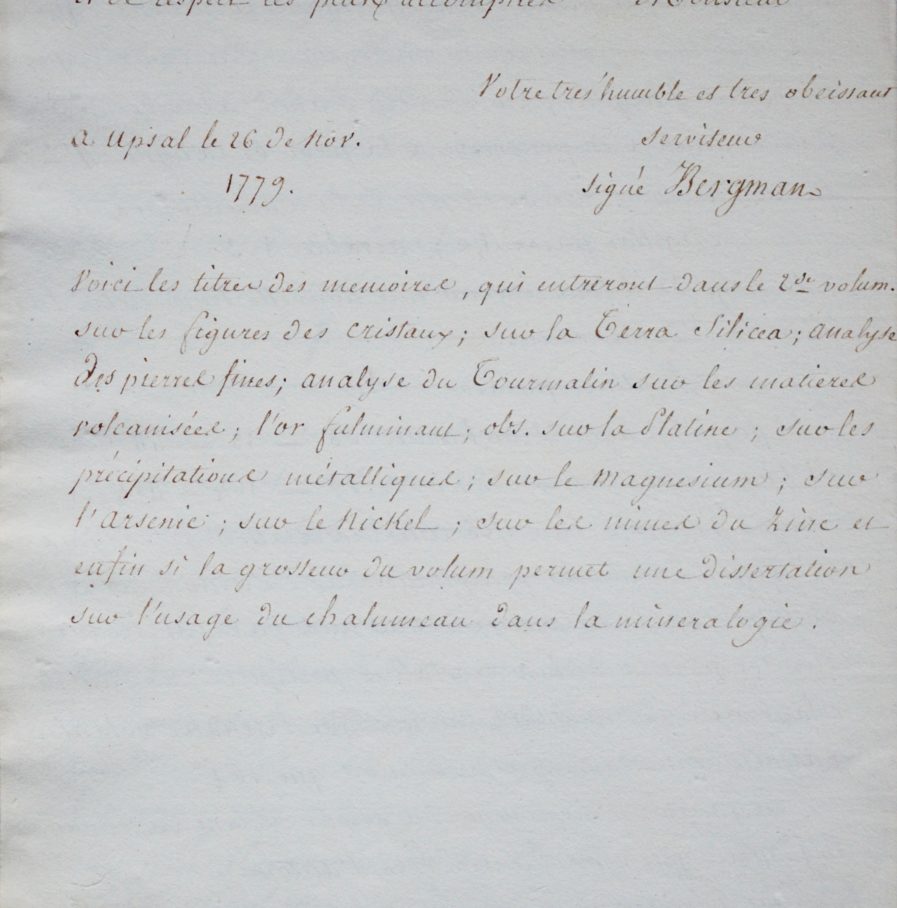 et de respect les plus accomplies Monsieur
Votre tres humble et tres obeissant
a Upsal le 26 de Nov. serviteur
1779. signé Bergman
Voici les titres des memoires, qui entreront dans le 2de volum.
sur les figures des cristaux; sur la Terra Silicea; analyse
des pierres fines; analyse du Tourmalin sur les matieres
volcanisées; l'or fulminant; obs. sur la Platine; sur les
précipitations métalliques; sur le Magnesium; sur
l'Arsenic; sur le Nickel; sur les mines du Zinc et
enfin si la grosseur du volum permet une dissertation
sur l'usage du chalumeau dans la mineralogie.